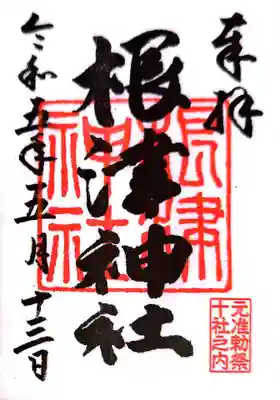 奉拝
根津神社
根津神社
元准勅祭
十社之内
令和五年五月十三日